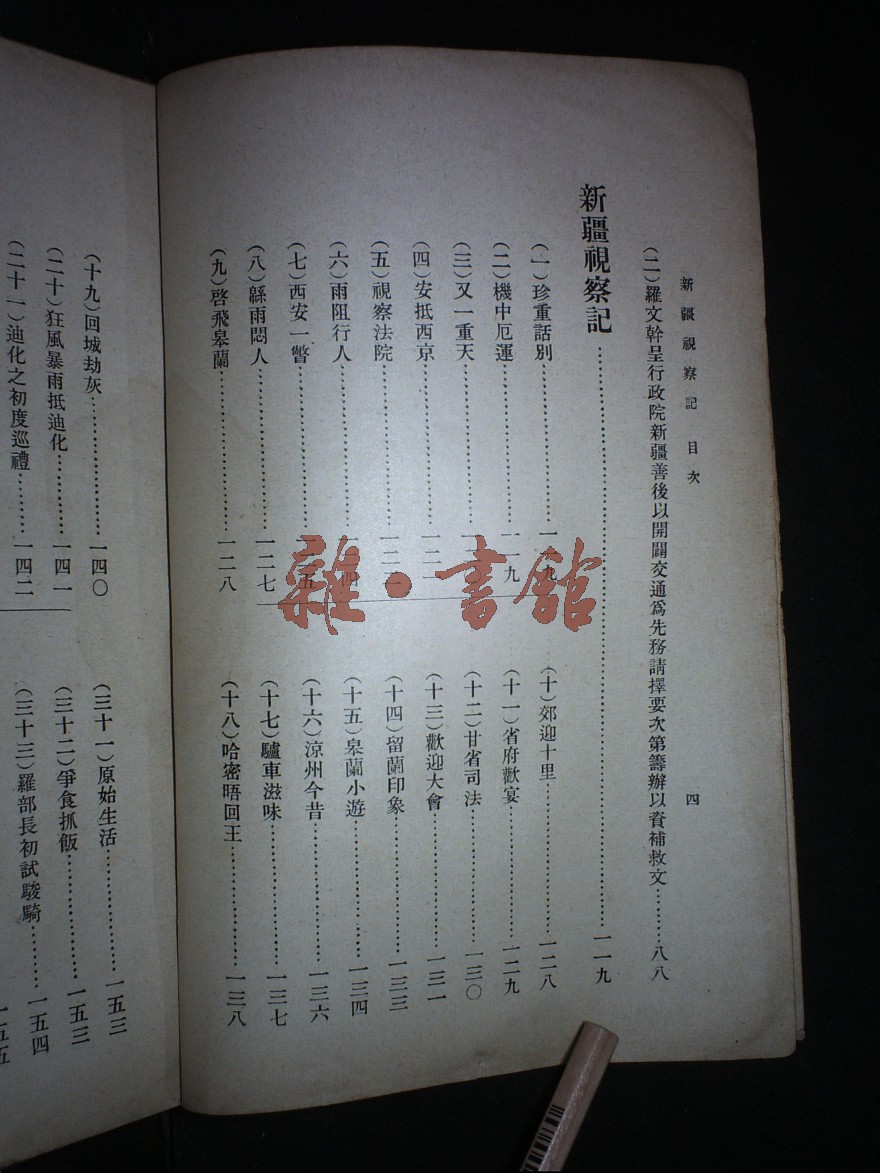 新疆視察記 目次
四
（二）羅文幹呈行政院新疆善後以開闢交通爲先務請擇要次第籌辦以資補救文…………八八
新疆視察記…………一一九
（一）珍重話別…………一一九
（二）機中厄運…………一一九
（三）又一重天…………
（四）安抵西京…………
（五）視察法院…………
（六）雨阻行人…………
（七）西安一瞥…………
（八）緜雨悶人…………一二七
（九）啓飛皋蘭…………一二八
（十）郊迎十里…………一二八
（十一）省府歡宴…………一二九
（十二）甘省司法…………一三〇
（十三）歡迎大會…………一三一
（十四）留蘭印象…………一三三
（十五）皋蘭小遊…………一三四
（十六）涼州今昔…………一三六
（十七）驢車滋味…………一三七
（十八）哈密晤回王…………一三八
（十九）回城劫灰…………一四〇
（二十）狂風暴雨抵迪化…………一四一
（二十一）迪化之初度巡禮…………一四二
（三十一）原始生活…………一五三
（三十二）爭食抓飯…………一五三
（三十三）羅部長初試駿騎…………一五四
一五五
雜·書館